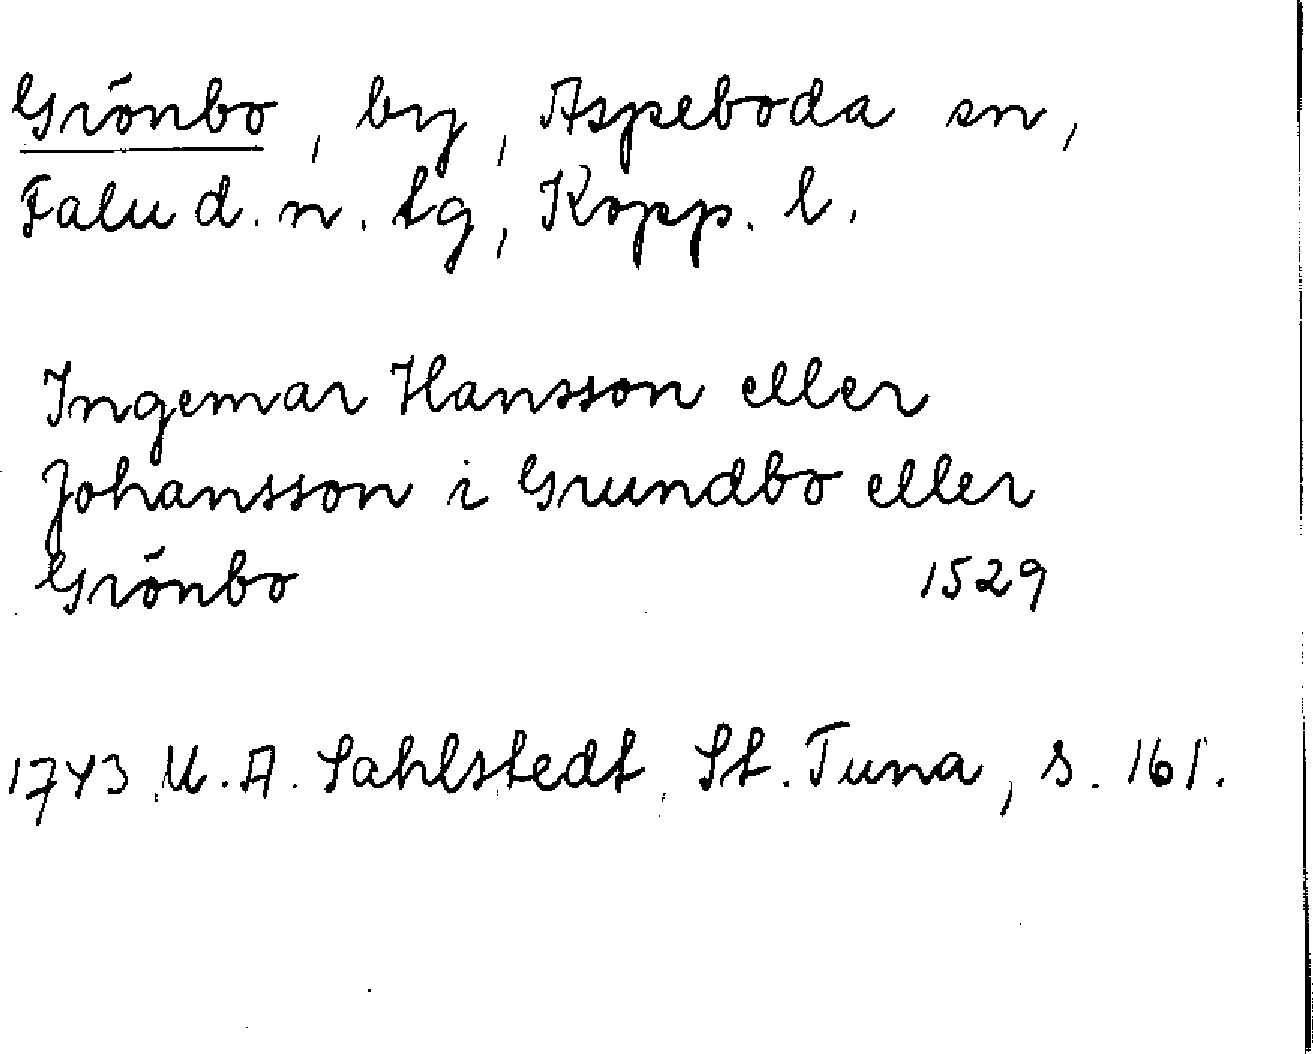 Grönbo, by, Aspeboda sn,
Falu d. n. tg, Kopp. l.
Ingemar Hansson eller
Johansson i Grundbo eller
Grönbo 1529
1743 U. A. Sahlstedt, St. Tuna, s. 161.